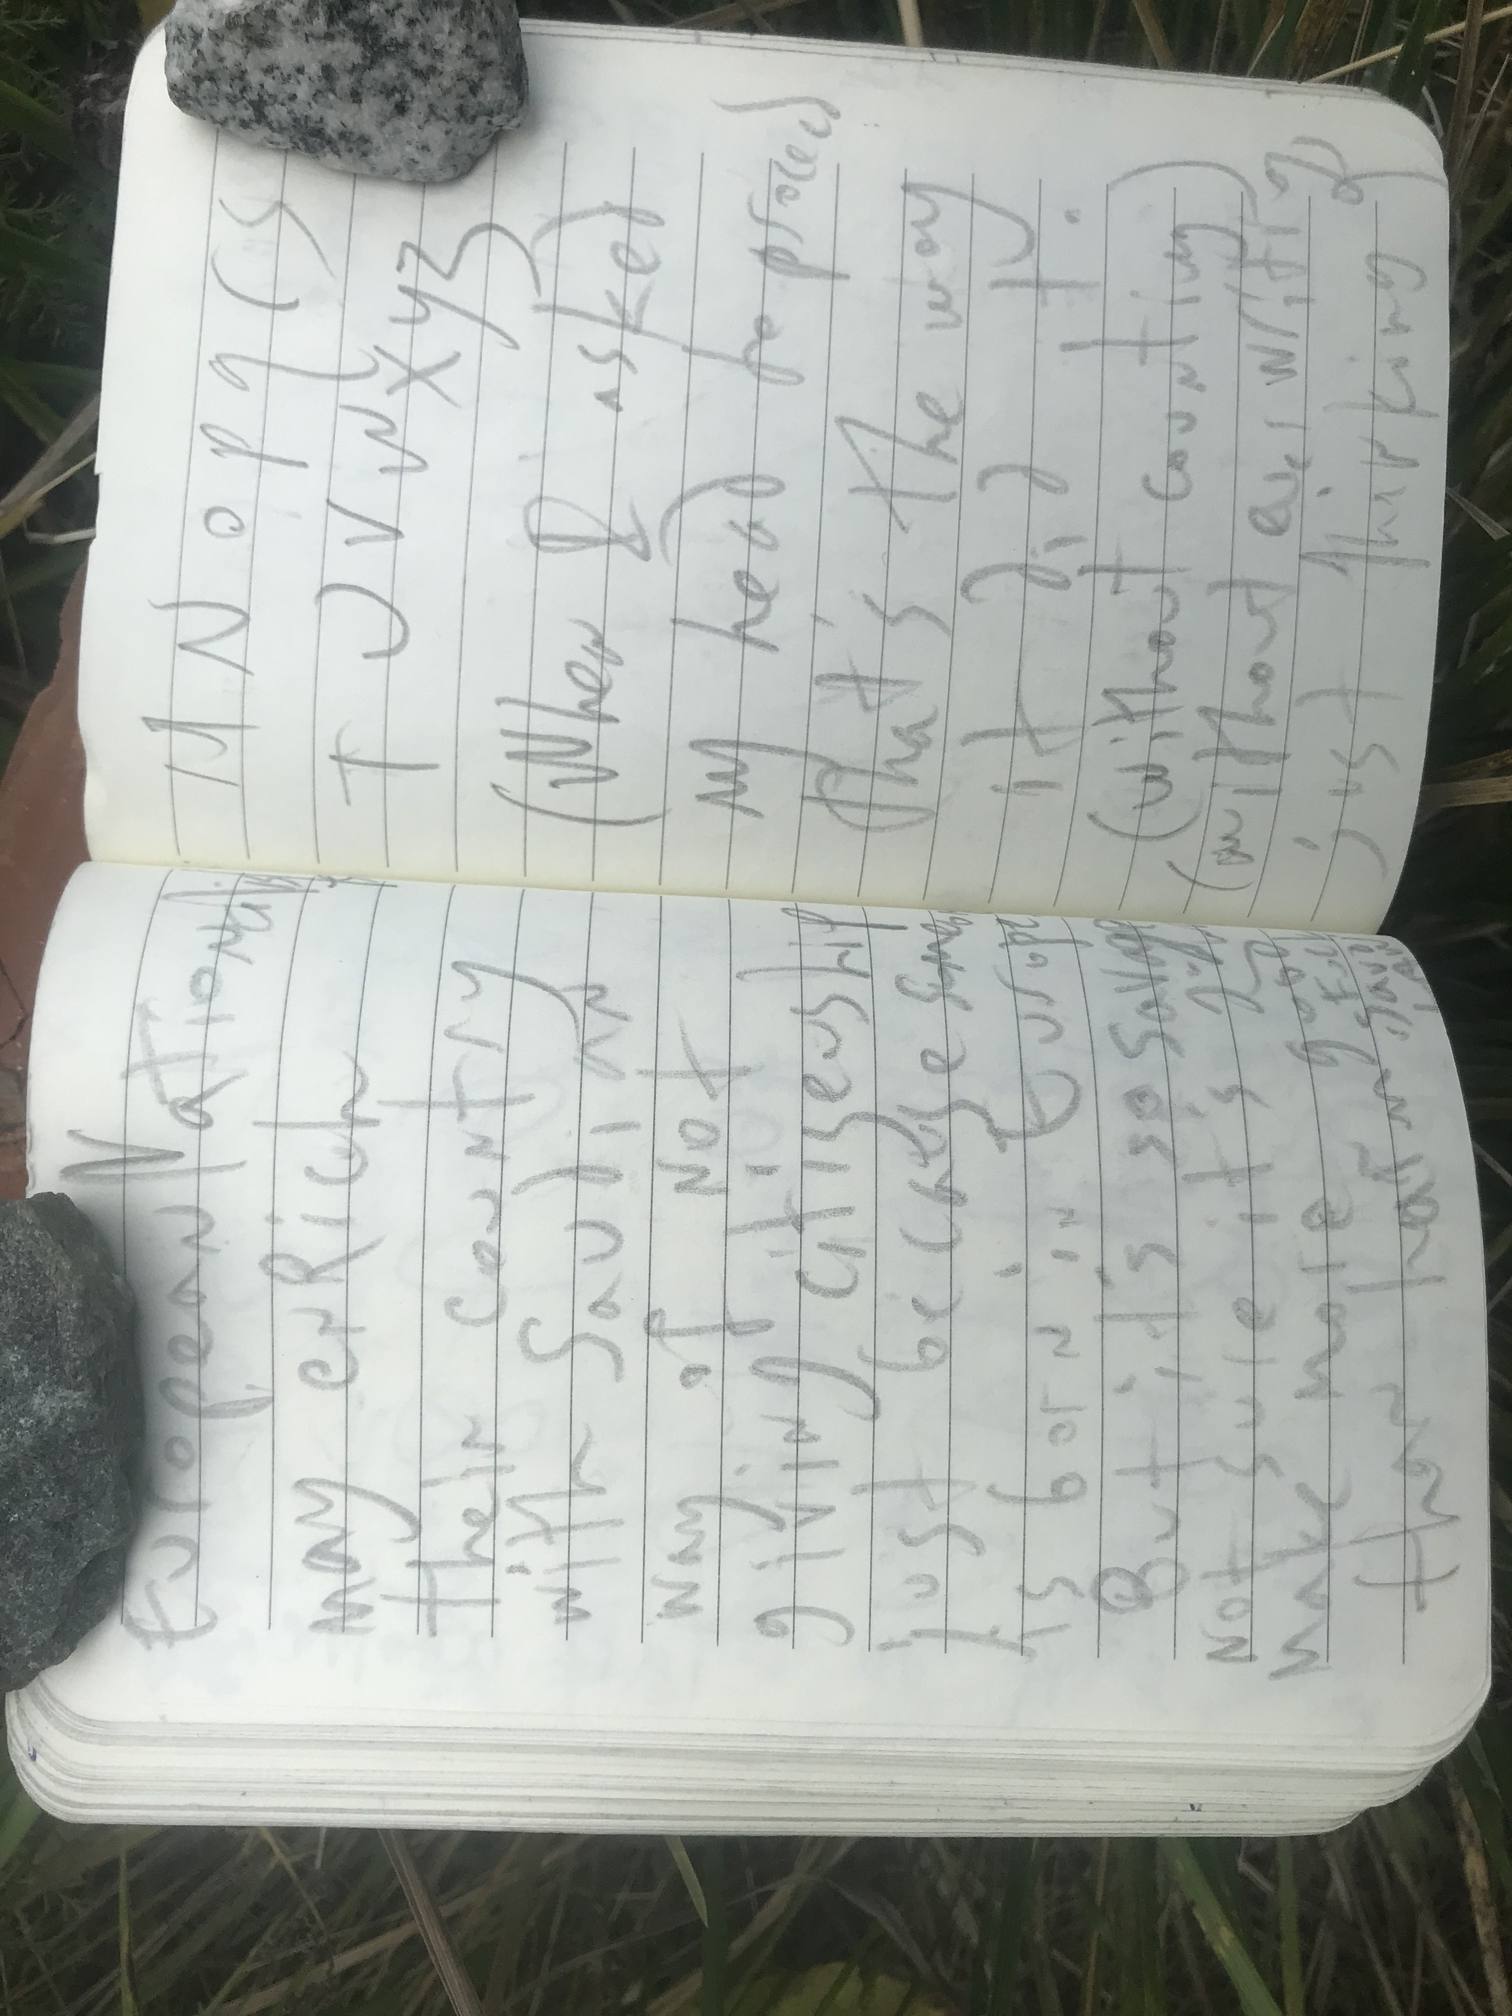 European Nationality
may enRich
their country
with Saudi an
way of not
giving citiseship
just because someone
is born in Europe
But it's so savage
Not sure it's
make more good
than harm
M N O P Q R S
T U V W X Y Z
(When I asked
my head to proceed
that's the way
it did it.
(without counting)
(without even writing)
just thinking of